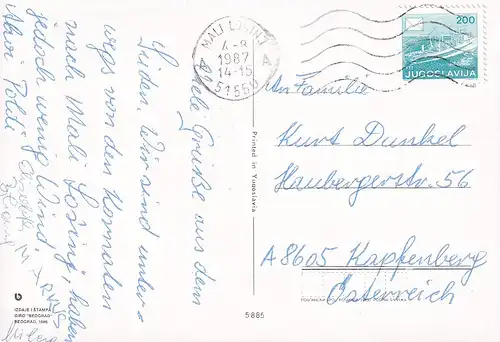 MALI LOŠINJ
4-8
1987
14-15
51550
A
200
JUGOSLAVIJA
Viele Grüße aus dem
Süden. Wir sind unter-
wegs von den Kornaten
nach Mali Lošinj, haben
jedoch wenig Wind.
Ahoi Poldi
An Familie
Kurt Dunkel
Haubergerstr. 56
A 8605 Kapfenberg
Österreich
Printed in Yugoslavia
IZDAJE I ŠTAMPA
GIRO "BEOGRAD"
BEOGRAD, 1986
5885